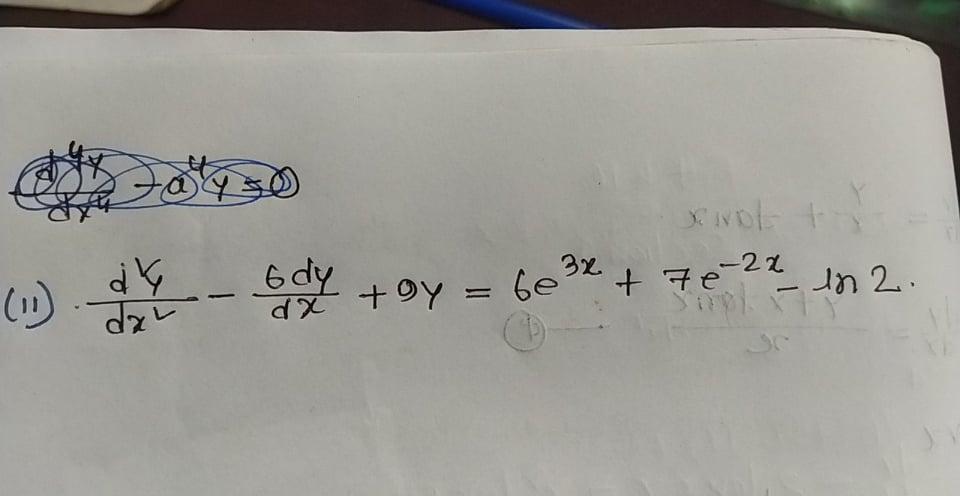 d⁴y/dx⁴ - a⁴y = 0
(11) . d²y/dx² - 6dy/dx + 9y = 6e^3x + 7e^-2x - ln 2.